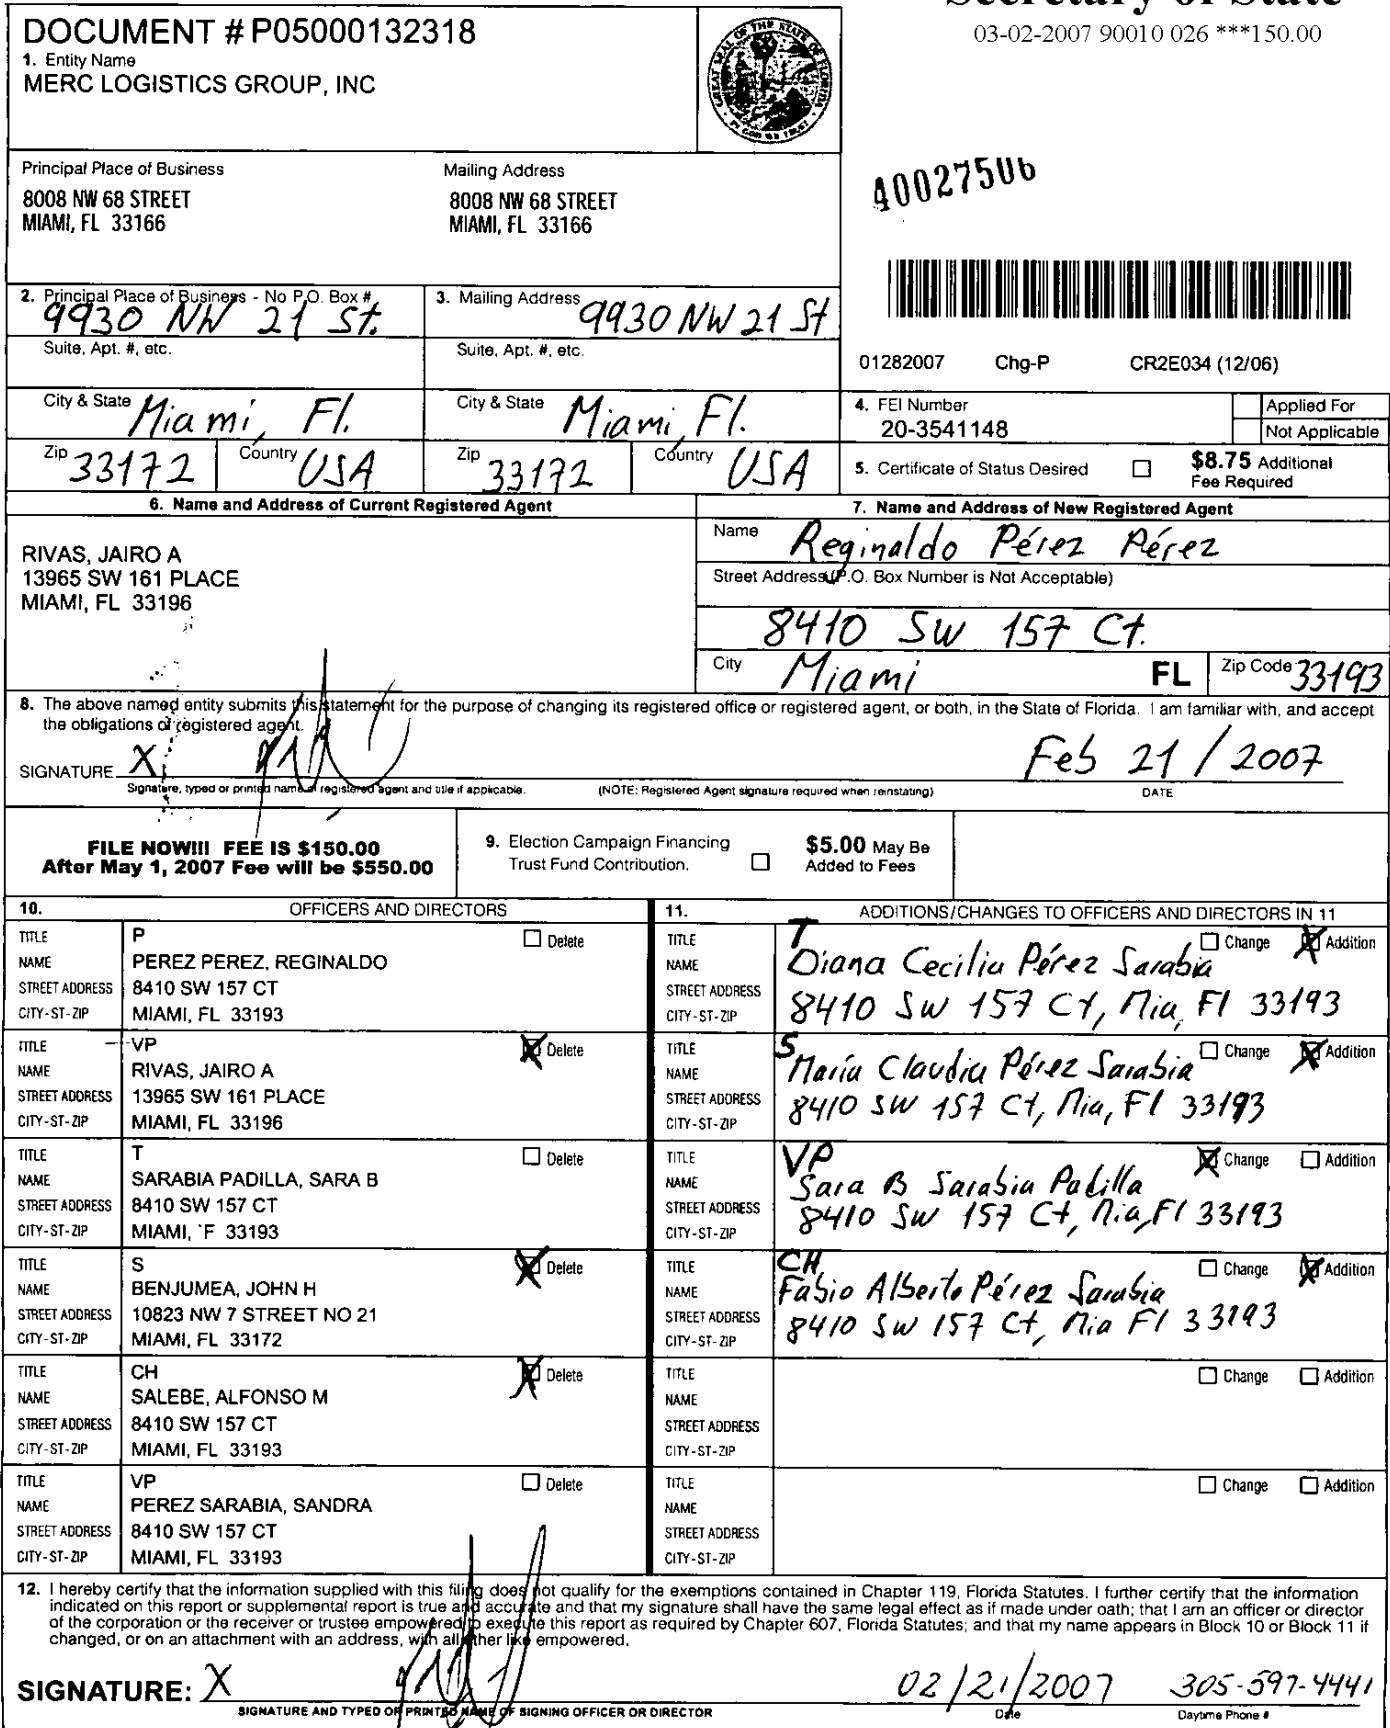 Secretary of State
03-02-2007 90010 026 ***150.00
DOCUMENT # P05000132318
1. Entity Name
MERC LOGISTICS GROUP, INC
Principal Place of Business
8008 NW 68 STREET
MIAMI, FL 33166
Mailing Address
8008 NW 68 STREET
MIAMI, FL 33166
40027506
2. Principal Place of Business - No P.O. Box #
9930 NW 21 St.
3. Mailing Address
9930 NW 21 St
Suite, Apt. #, etc.
Suite, Apt. #, etc.
01282007 Chg-P CR2E034 (12/06)
City & State Miami, Fl.
City & State Miami, Fl.
4. FEI Number
20-3541148
Applied For
Not Applicable
Zip 33172 Country USA
Zip 33172 Country USA
5. Certificate of Status Desired
$8.75 Additional
Fee Required
6. Name and Address of Current Registered Agent
RIVAS, JAIRO A
13965 SW 161 PLACE
MIAMI, FL 33196
7. Name and Address of New Registered Agent
Name Reginaldo Pérez Pérez
Street Address (P.O. Box Number is Not Acceptable)
8410 SW 157 Ct.
City Miami FL Zip Code 33193
8. The above named entity submits this statement for the purpose of changing its registered office or registered agent, or both, in the State of Florida. I am familiar with, and accept
the obligations of registered agent.
SIGNATURE X Feb 21 / 2007
Signature, typed or printed name of registered agent and title if applicable. (NOTE: Registered Agent signature required when reinstating) DATE
FILE NOW!!! FEE IS $150.00
After May 1, 2007 Fee will be $550.00
9. Election Campaign Financing
Trust Fund Contribution.
$5.00 May Be
Added to Fees
10. OFFICERS AND DIRECTORS
TITLE P Delete
NAME PEREZ PEREZ, REGINALDO
STREET ADDRESS 8410 SW 157 CT
CITY-ST-ZIP MIAMI, FL 33193
TITLE VP Delete
NAME RIVAS, JAIRO A
STREET ADDRESS 13965 SW 161 PLACE
CITY-ST-ZIP MIAMI, FL 33196
TITLE T Delete
NAME SARABIA PADILLA, SARA B
STREET ADDRESS 8410 SW 157 CT
CITY-ST-ZIP MIAMI, F 33193
TITLE S Delete
NAME BENJUMEA, JOHN H
STREET ADDRESS 10823 NW 7 STREET NO 21
CITY-ST-ZIP MIAMI, FL 33172
TITLE CH Delete
NAME SALEBE, ALFONSO M
STREET ADDRESS 8410 SW 157 CT
CITY-ST-ZIP MIAMI, FL 33193
TITLE VP Delete
NAME PEREZ SARABIA, SANDRA
STREET ADDRESS 8410 SW 157 CT
CITY-ST-ZIP MIAMI, FL 33193
11. ADDITIONS/CHANGES TO OFFICERS AND DIRECTORS IN 11
TITLE T Change Addition
NAME Diana Cecilia Pérez Sarabia
STREET ADDRESS 8410 SW 157 Ct, Mia, Fl 33193
CITY-ST-ZIP
TITLE S Change Addition
NAME María Claudia Pérez Sarabia
STREET ADDRESS 8410 SW 157 Ct, Mia, Fl 33193
CITY-ST-ZIP
TITLE VP Change Addition
NAME Sara B Sarabia Padilla
STREET ADDRESS 8410 SW 157 Ct, Mia, Fl 33193
CITY-ST-ZIP
TITLE CH Change Addition
NAME Fabio Alberto Pérez Sarabia
STREET ADDRESS 8410 SW 157 Ct, Mia Fl 33193
CITY-ST-ZIP
TITLE Change Addition
NAME
STREET ADDRESS
CITY-ST-ZIP
TITLE Change Addition
NAME
STREET ADDRESS
CITY-ST-ZIP
12. I hereby certify that the information supplied with this filing does not qualify for the exemptions contained in Chapter 119, Florida Statutes. I further certify that the information
indicated on this report or supplemental report is true and accurate and that my signature shall have the same legal effect as if made under oath; that I am an officer or director
of the corporation or the receiver or trustee empowered to execute this report as required by Chapter 607, Florida Statutes; and that my name appears in Block 10 or Block 11 if
changed, or on an attachment with an address, with all other like empowered.
SIGNATURE: X 02/21/2007 305-597-4441
SIGNATURE AND TYPED OR PRINTED NAME OF SIGNING OFFICER OR DIRECTOR Date Daytime Phone #